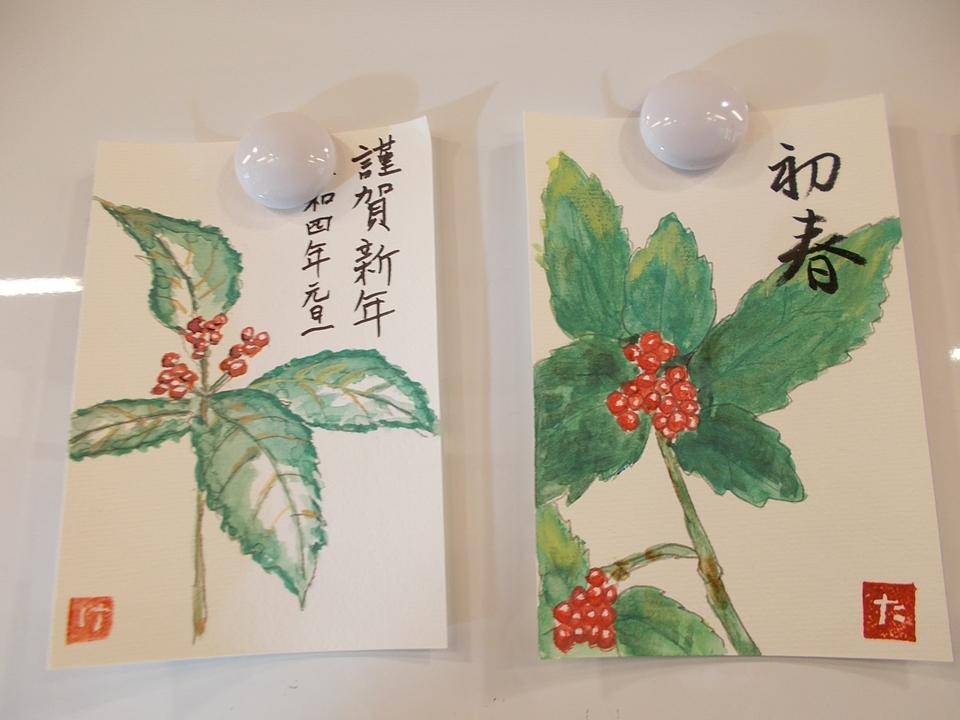 謹賀新年
和四年元旦
初春
け
た